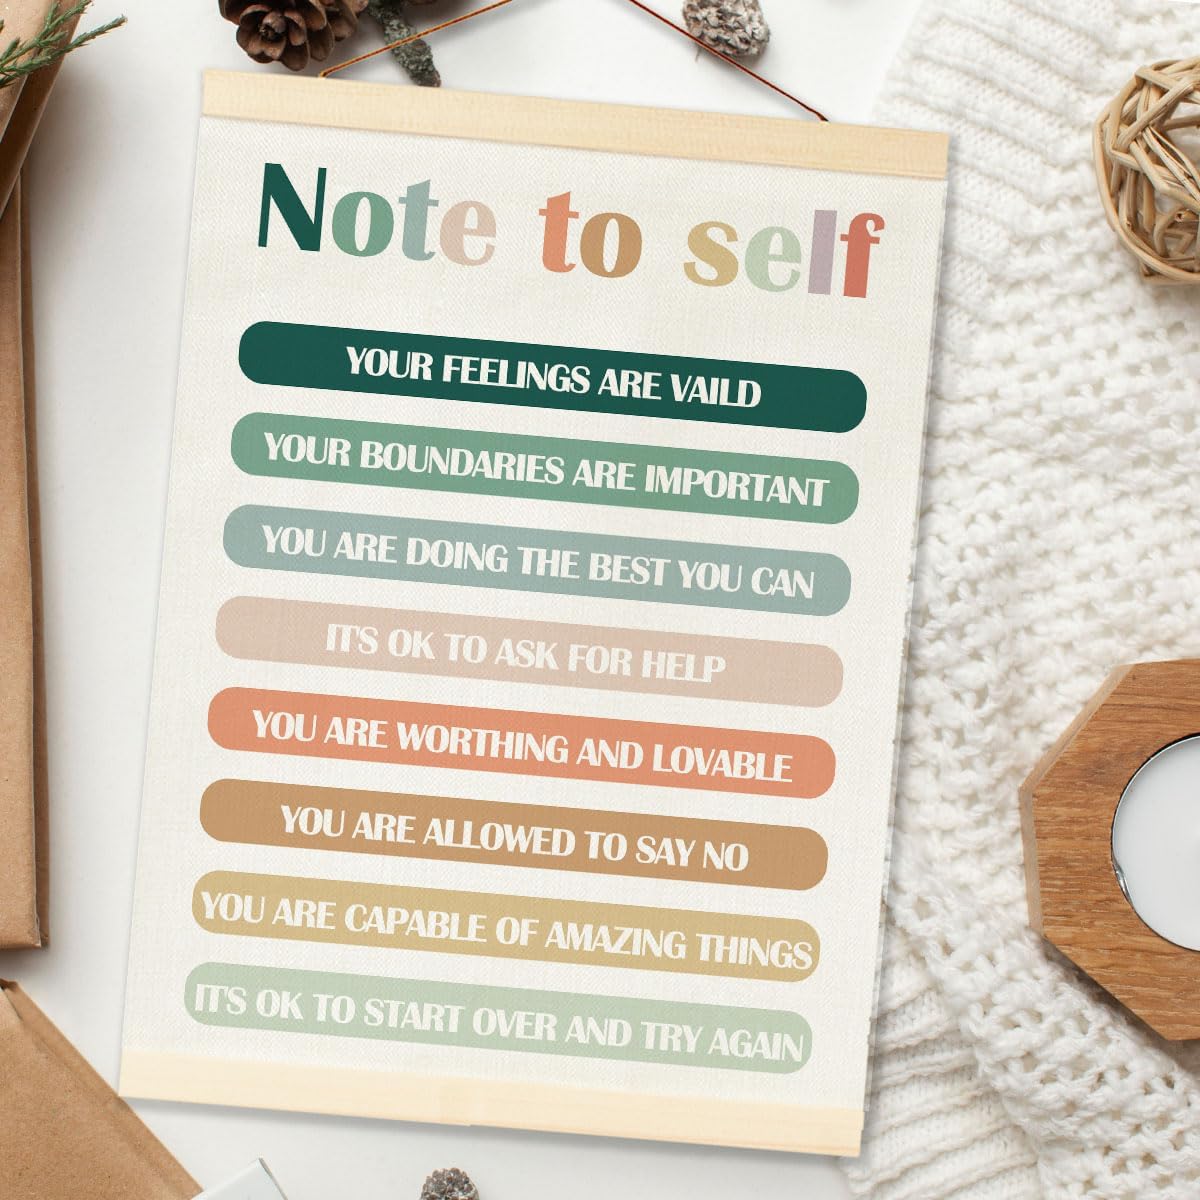 Note to self
YOUR FEELINGS ARE VAILD
YOUR BOUNDARIES ARE IMPORTANT
YOU ARE DOING THE BEST YOU CAN
IT'S OK TO ASK FOR HELP
YOU ARE WORTHING AND LOVABLE
YOU ARE ALLOWED TO SAY NO
YOU ARE CAPABLE OF AMAZING THINGS
IT'S OK TO START OVER AND TRY AGAIN